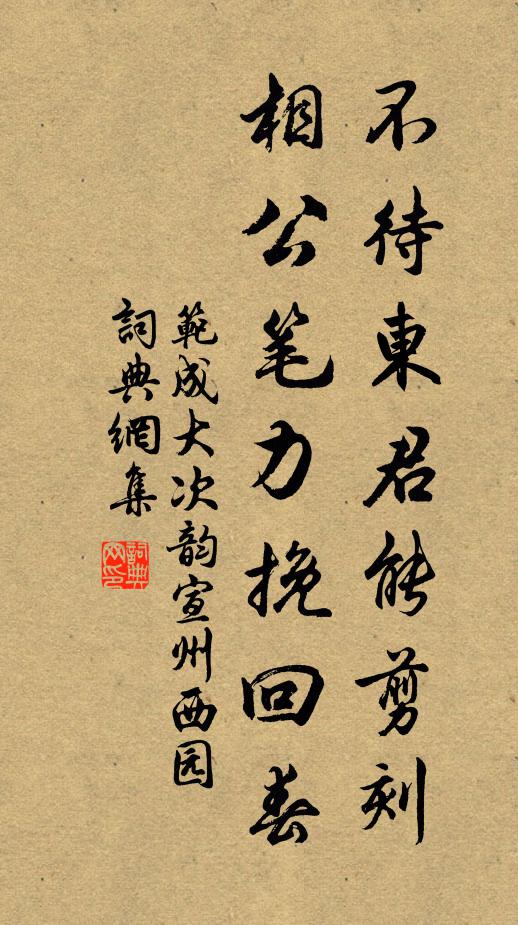 不待東君能剪刻
相公笔力挽回春
範成大次韵宣州西园
詞典網集
詞典网印